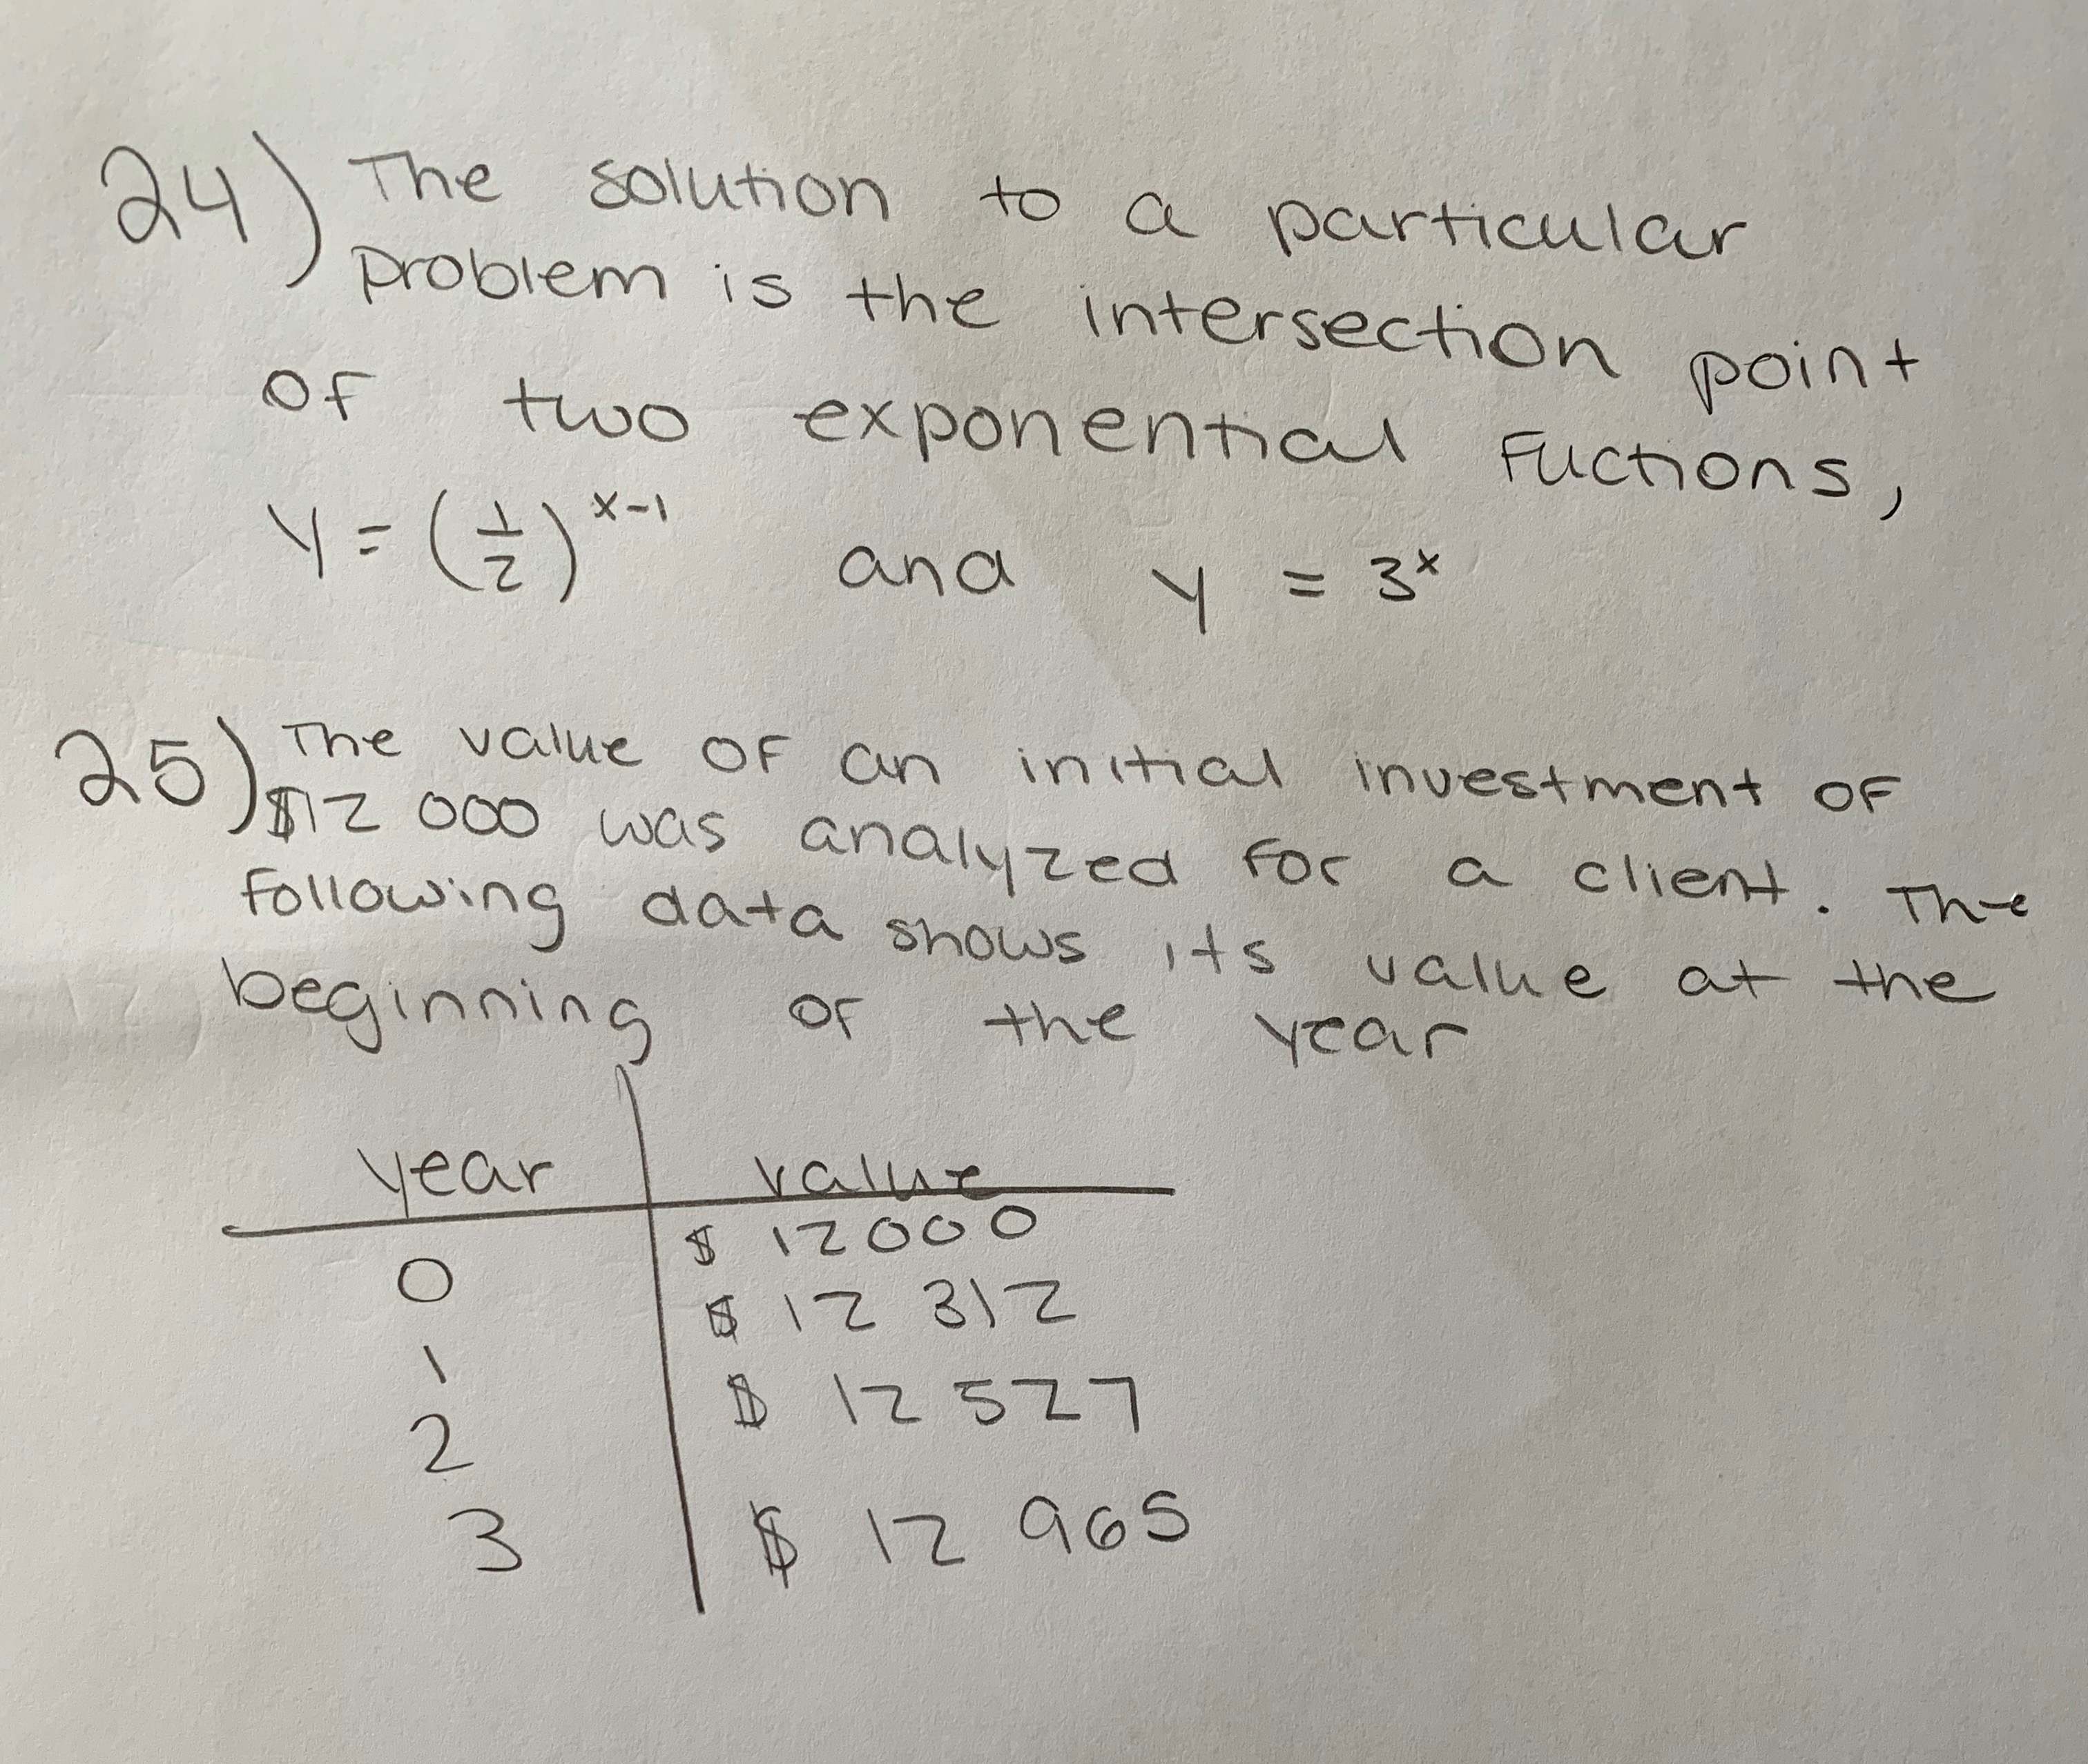 24) The solution to a particular
problem is the intersection point
of two exponential fuctions,
y = (1/2)^x-1 and y = 3^x
25) The value of an initial investment of
$12 000 was analyzed for a client. The
following data shows its value at the
beginning of the year
year value
0 $ 12000
1 $ 12 312
2 $ 12 527
3 $ 12 965